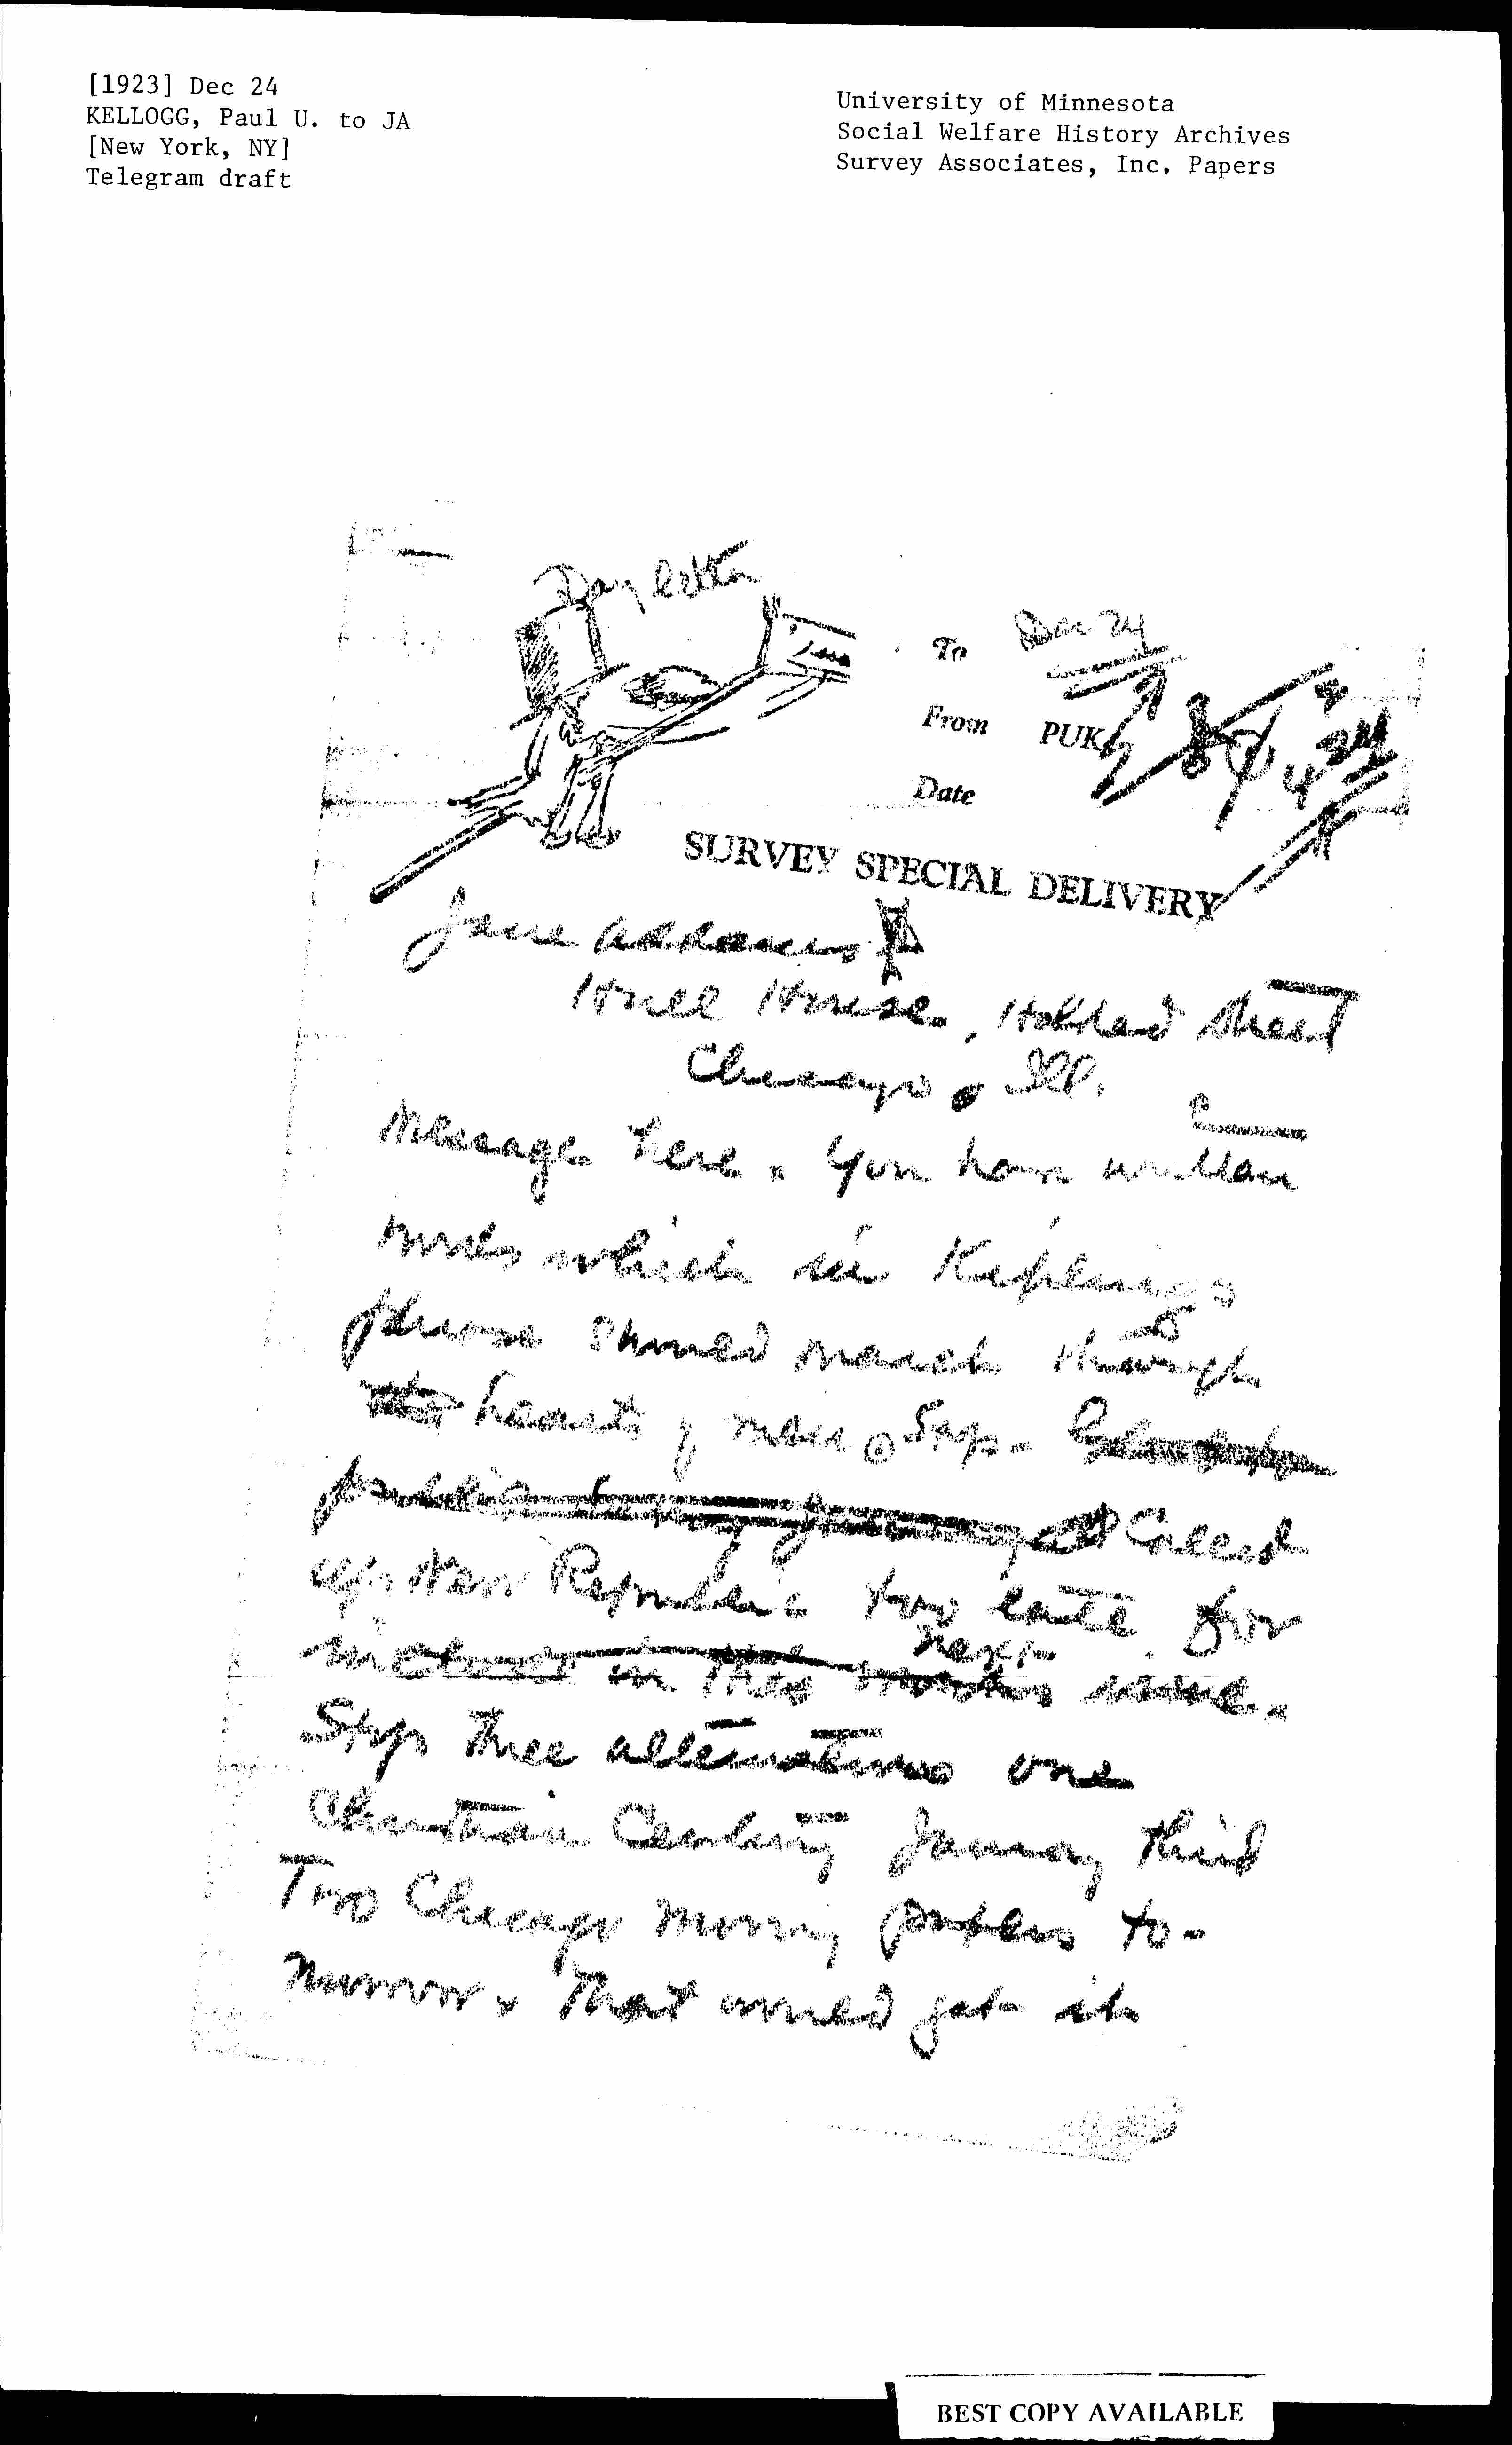 [1923] Dec 24
KELLOGG, Paul U. to JA
[New York, NY]
Telegram draft
University of Minnesota
Social Welfare History Archives
Survey Associates, Inc. Papers
Day letter
To Dec 24
From PUK
Date
SURVEY SPECIAL DELIVERY
Jane Addams
Hull House, Halsted Street
Chicago, Ill.
Message here. You have written
words which in Kiplings
phrase should march through
the hearts of men. Stop.
public Called
up New Republic too late for
in their next issue.
Stop Three alternatives one
Christian Century January third
Two Chicago morning papers to-
morrow. That would get it
BEST COPY AVAILABLE